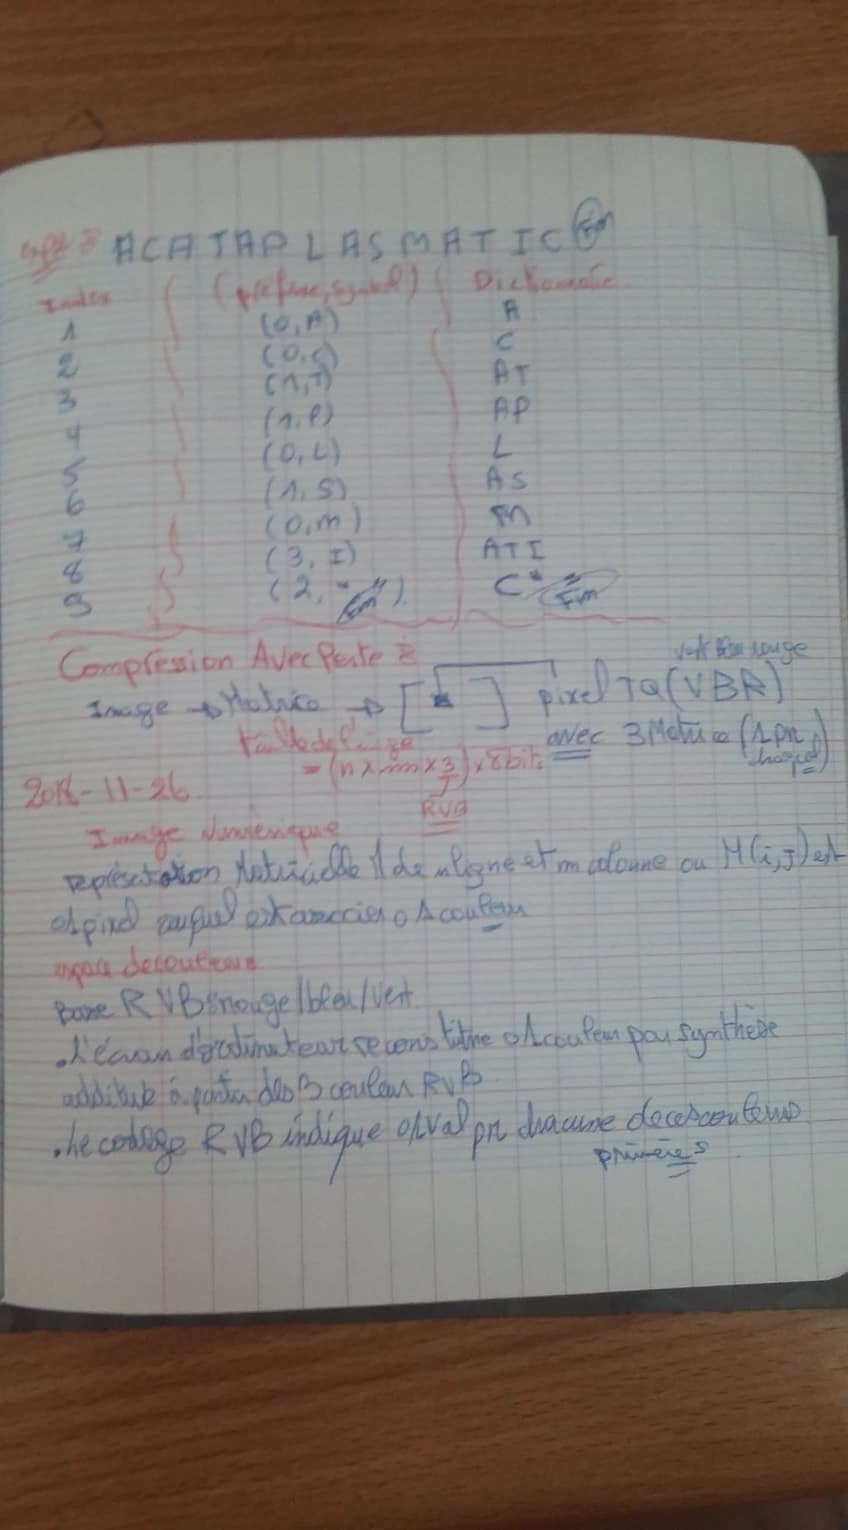 ACATAPLASMATIC Fin
Index (prefixe, symbol) Dictionnaire
1 (0, A) A
2 (0, C) C
3 (1, T) AT
4 (1, P) AP
5 (0, L) L
6 (1, S) AS
7 (0, m) m
8 (3, I) ATI
9 (2, " Fin ") C" Fin
Compression Avec Perte :
vert bleu rouge
Image → Matrice → [ ] pixel TQ (VBR)
avec 3 Matrice (1 pr chaque)
= (n x m x 3) x 8bit
RVB
2018-11-26
Image Numerique
représentation Matricielle de n ligne et m colonne ou M(i,J) est
pixel auquel est associer 1 couleur
espace de couleurs
Base RVB : rouge/bleu/vert
. L'écran d'ordinateur reconstitue couleur par synthèse
additive à partir des 3 couleurs RVB
. Le codage RVB indique val pr chacune de ces couleurs
primères